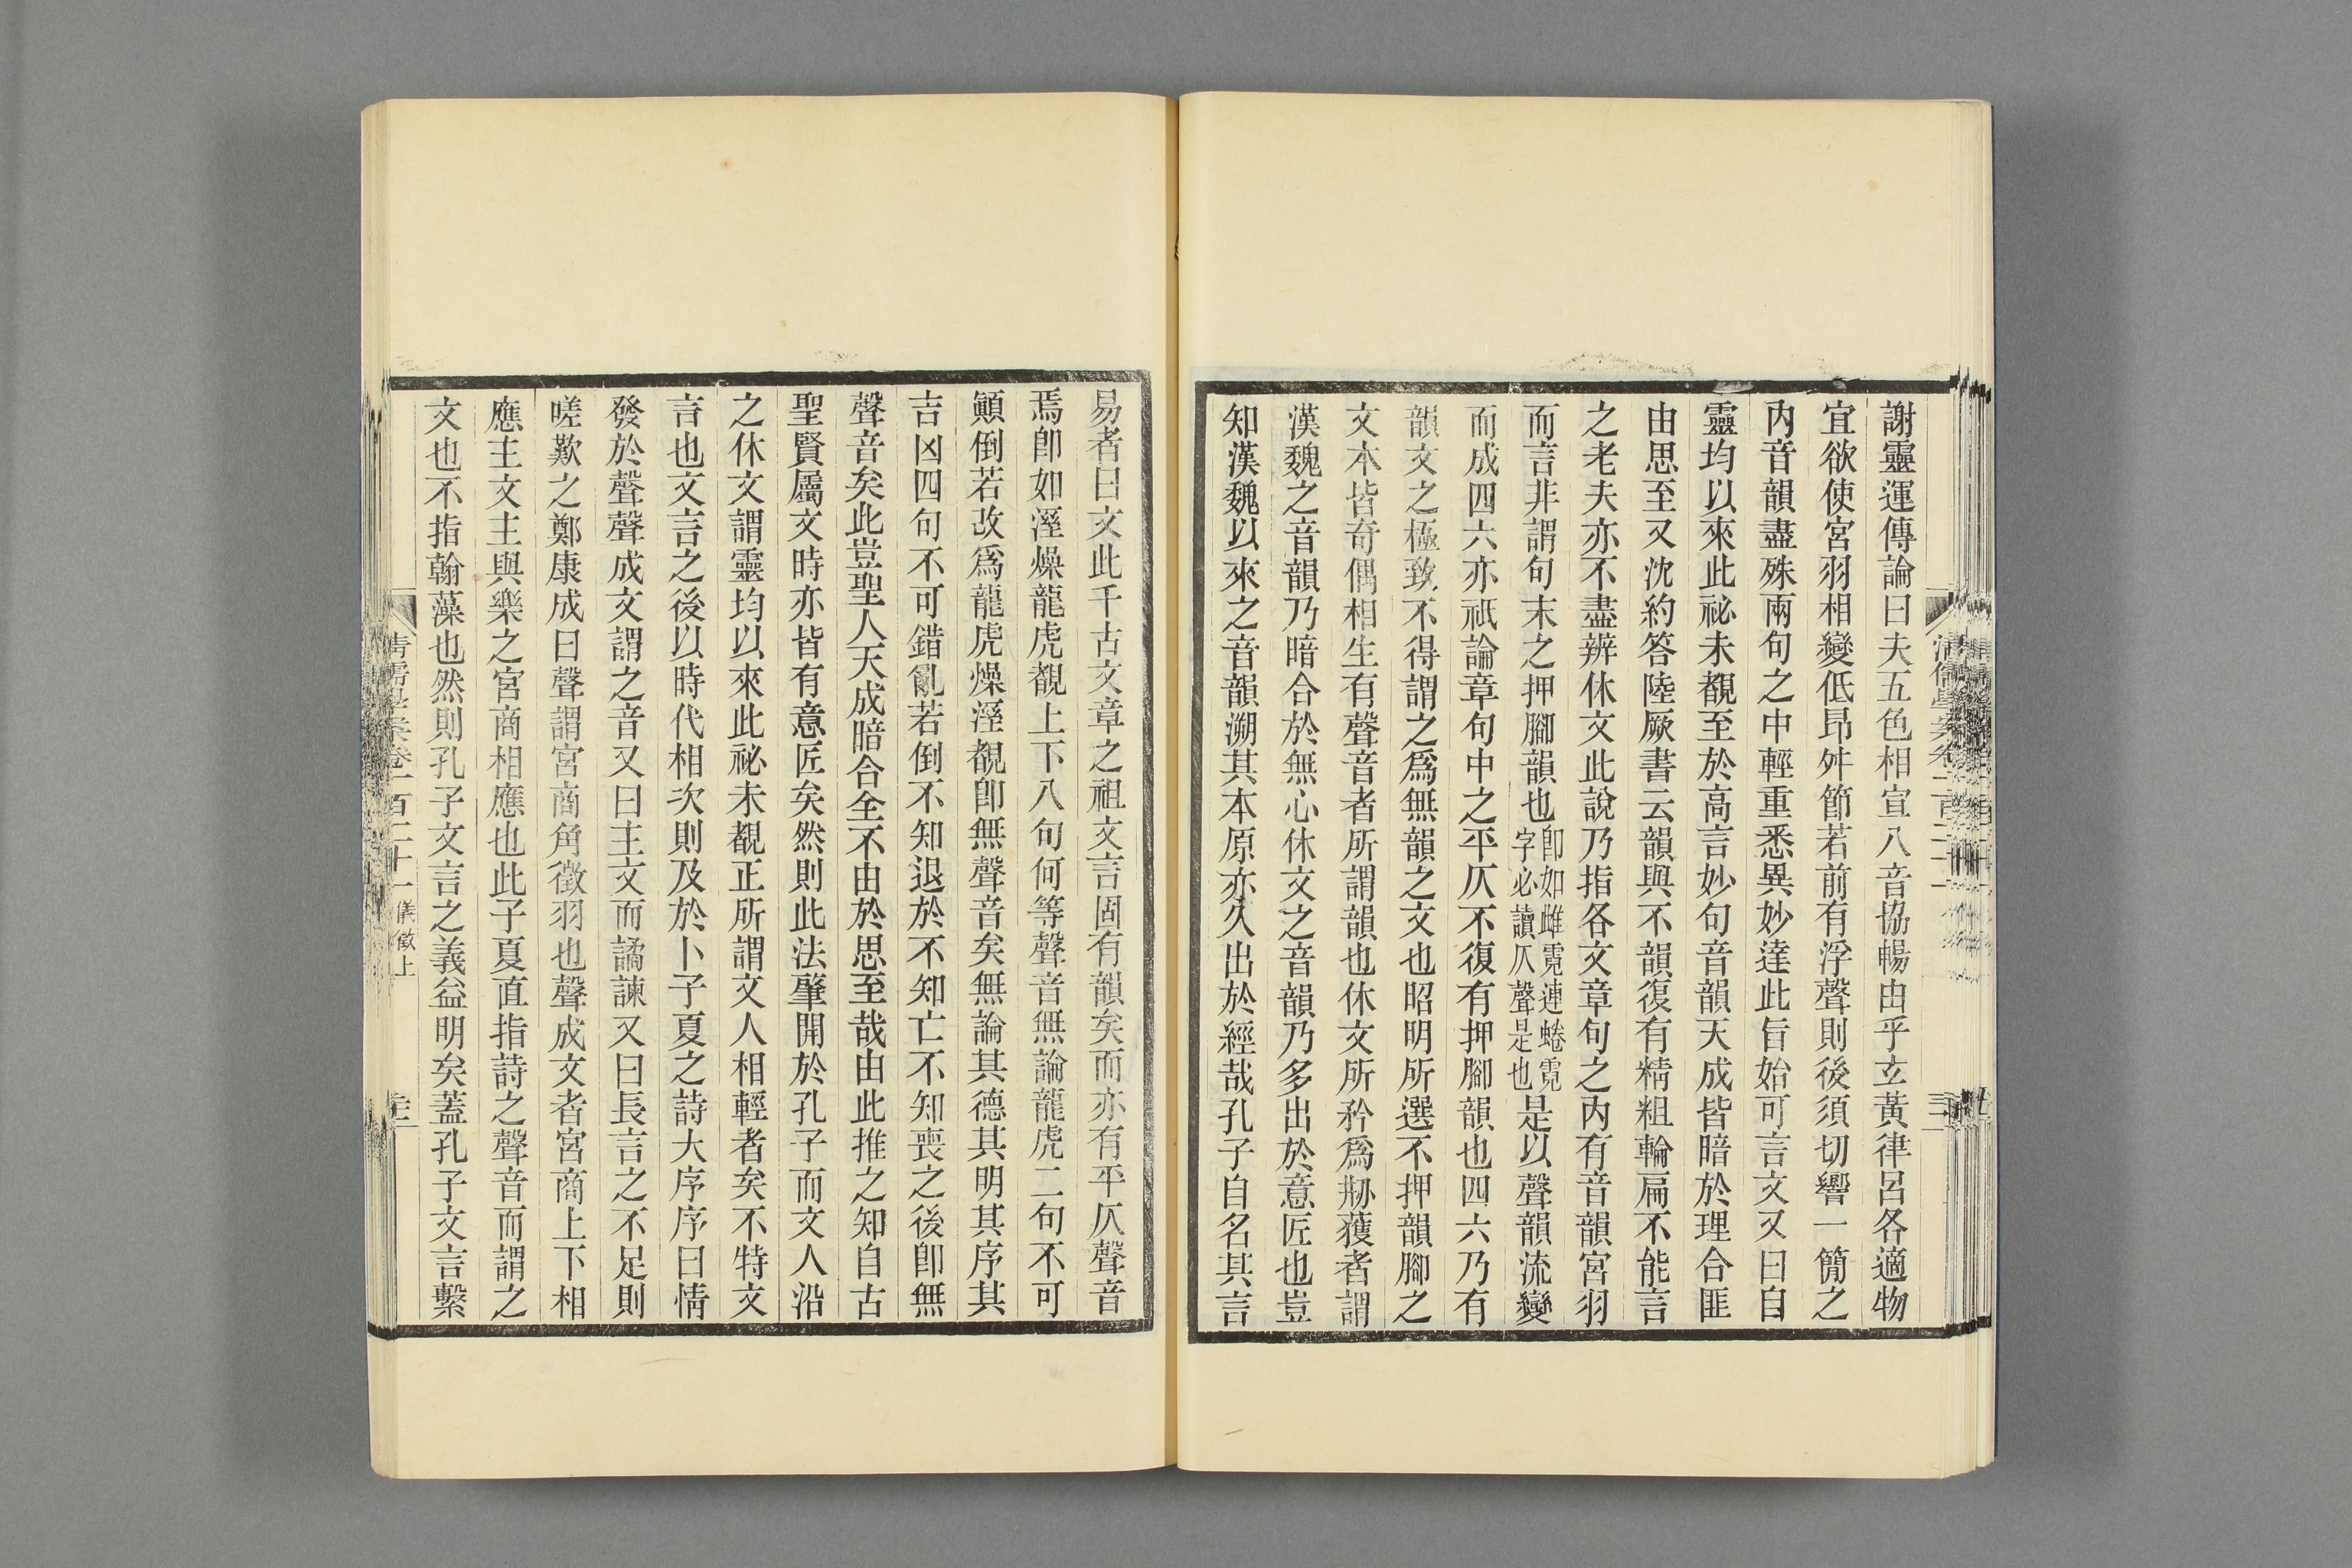 謝靈運傳論曰夫五色相宣八音協暢由乎玄黃律呂各適物
宜欲使宮羽相變低昂舛節若前有浮聲則後須切響一簡之
內音韻盡殊兩句之中輕重悉異妙達此旨始可言文又曰自
靈均以來此祕未覩至於高言妙句音韻天成皆暗於理合匪
由思至又沈約答陸厥書云韻與不韻復有精粗輪扁不能言
之老夫亦不盡辨休文此說乃指各文章句之內有音韻宮羽
而言非謂句末之押腳韻也卽如雌霓連蜷霓字必讀仄聲是也是以聲韻流變
而成四六亦祇論章句中之平仄不復有押腳韻也四六乃有
韻文之極致不得謂之爲無韻之文也昭明所選不押韻腳之
文本皆奇偶相生有聲音者所謂韻也休文所矜爲剏獲者謂
漢魏之音韻乃暗合於無心休文之音韻乃多出於意匠也豈
知漢魏以來之音韻溯其本原亦久出於經哉孔子自名其言
易者曰文此千古文章之祖文言固有韻矣而亦有平仄聲音
焉卽如溼燥龍虎覩上下八句何等聲音無論龍虎二句不可
顚倒若改爲龍虎燥溼覩卽無聲音矣無論其德其明其序其
吉凶四句不可錯亂若倒不知退於不知亡不知喪之後卽無
聲音矣此豈聖人天成暗合全不由於思至哉由此推之知自古
聖賢屬文時亦皆有意匠矣然則此法肇開於孔子而文人沿
之休文謂靈均以來此祕未覩正所謂文人相輕者矣不特文
言也文言之後以時代相次則及於卜子夏之詩大序序曰情
發於聲聲成文謂之音又曰主文而譎諫又曰長言之不足則
嗟歎之鄭康成曰聲謂宮商角徵羽也聲成文者宮商上下相
應主文主與樂之宮商相應也此子夏直指詩之聲音而謂之
文也不指翰藻也然則孔子文言之義益明矣蓋孔子文言繫
清儒學案卷一百二十一儀徵上